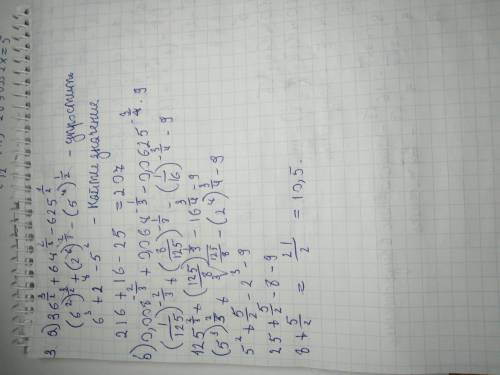 3 а) 36^(3/2) + 64^(2/3) - 625^(1/2)
(6²)^(3/2) + (2⁶)^(2/3) - (5⁴)^(1/2) - упростить
6³ + 2⁴ - 5² - Найти значение
216 + 16 - 25 = 207
б) 0,008^(-2/3) + 0,064^(-1/3) - 0,0625^(-3/4) - 9
(1/125)^(-2/3) + (8/125)^(-1/3) - (1/16)^(-3/4) - 9
125^(2/3) + (125/8)^(1/3) - 16^(3/4) - 9
(5³)^(2/3) + ∛(125/8) - (2⁴)^(3/4) - 9
5² + 5/2 - 2³ - 9
25 + 5/2 - 8 - 9
8 + 5/2 = 21/2 = 10,5.